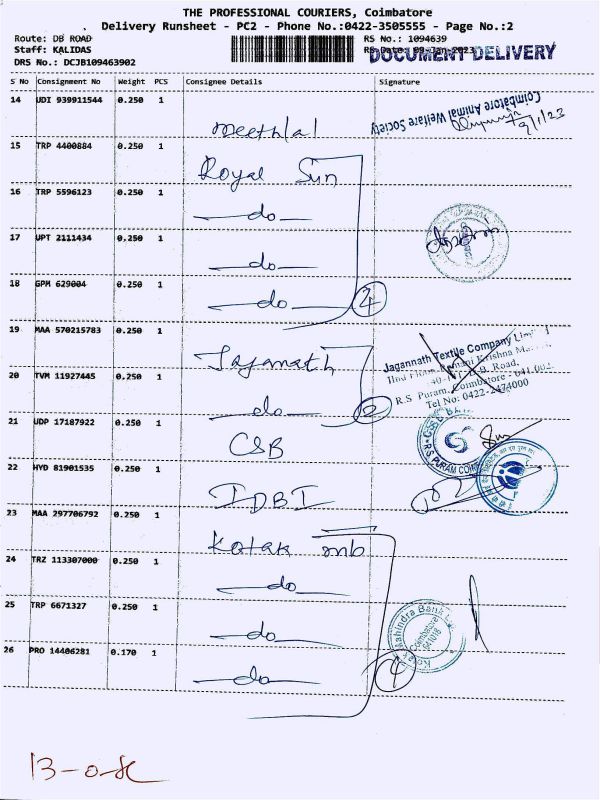 THE PROFESSIONAL COURIERS, Coimbatore
Delivery Runsheet - PC2 - Phone No.:0422-3505555 - Page No.:2
Route: DB ROAD
RS No.: 1094639
Staff: KALIDAS
RS Date: 09-Jan-2023
DOCUMENT DELIVERY
DRS No.: DCJB109463902
S No Consignment No Weight PCS Consignee Details Signature
14 UDI 939911544 0.250 1
Coimbatore Animal Welfare Society
9/1/23
15 TRP 4400884 0.250 1 Royal Sun
16 TRP 5596123 0.250 1 do
17 UPT 2111434 0.250 1 do
18 GPM 629004 0.250 1 do 4
19 MAA 570215783 0.250 1 Jaganath
Jagannath Textile Company
Krishna
D.B. Road,
R.S. Puram, Coimbatore - 641 002.
Tel No: 0422-2474000
20 TVM 11927445 0.250 1 do 2
21 UDP 17187922 0.250 1 CSB
R.S PURAM
22 HYD 81901535 0.250 1 IDBI
23 MAA 297706792 0.250 1 Kotak mb
24 TRZ 113307000 0.250 1 do
25 TRP 6671327 0.250 1 do
Kotak Mahindra Bank
Coimbatore
26 PRO 14406281 0.170 1 do 4